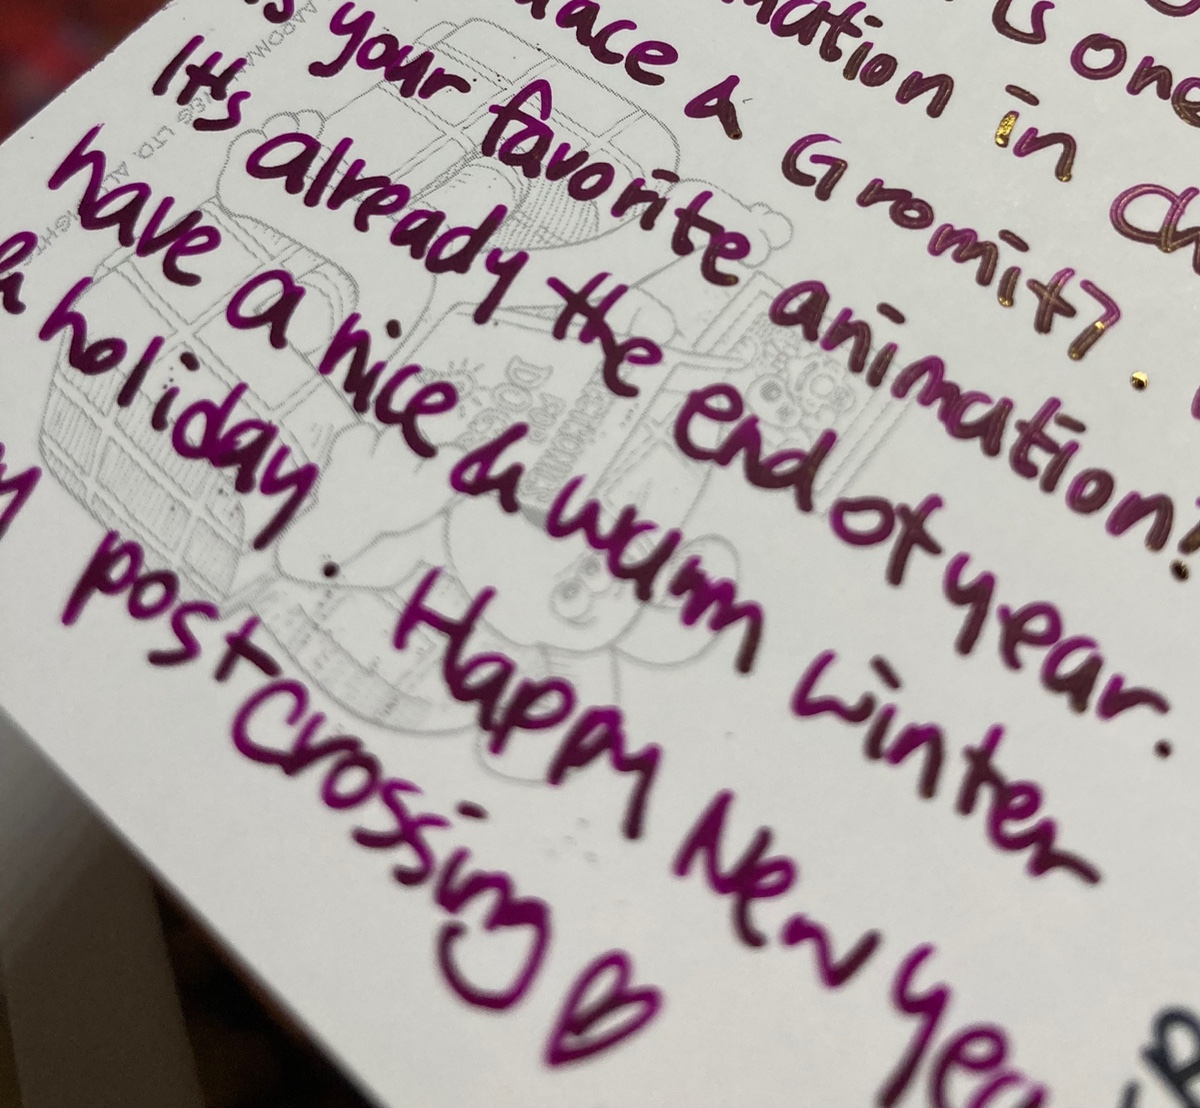 is one
mation in Ch
lace & Gromit?.
is your favorite animation!
It's already the end of year.
have a nice & warm winter
& holiday. Happy New Yea
y postcrossing ♡
LTD